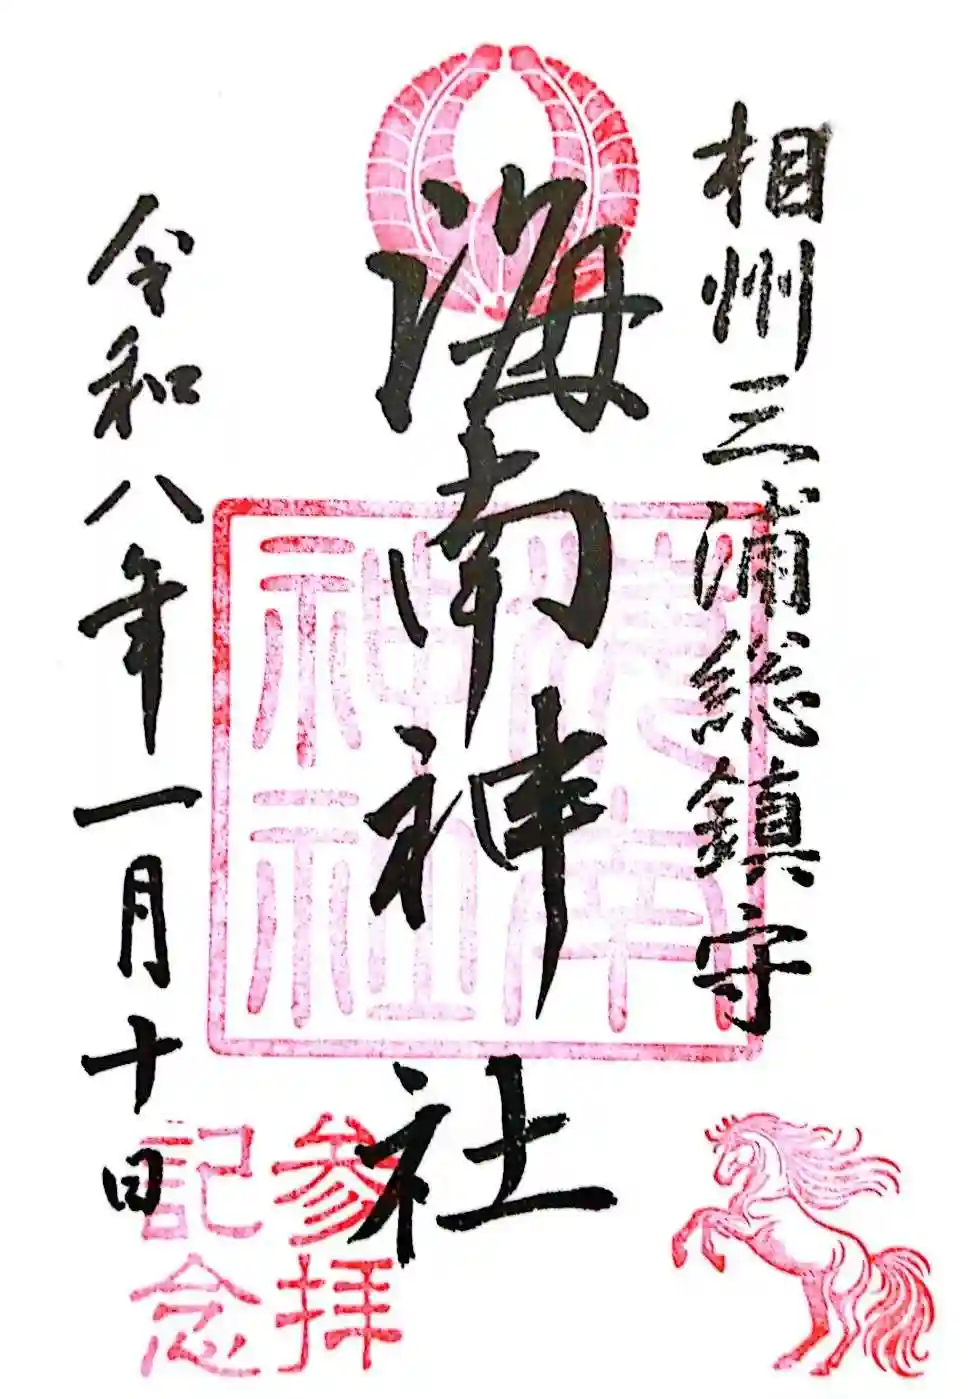 相州三浦総鎮守
海南神社
令和八年一月十日
参拝
記念